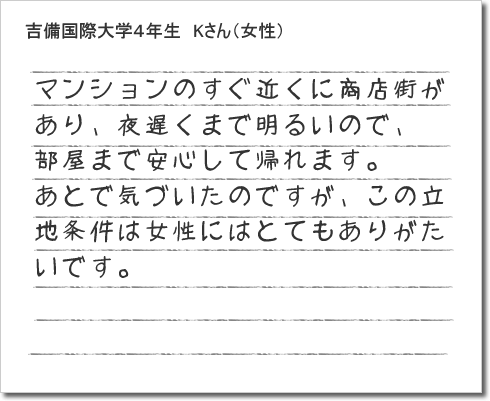 吉備国際大学4年生　Kさん(女性)
マンションのすぐ近くに商店街が
あり、夜遅くまで明るいので、
部屋まで安心して帰れます。
あとで気づいたのですが、この立
地条件は女性にはとてもありがた
いです。